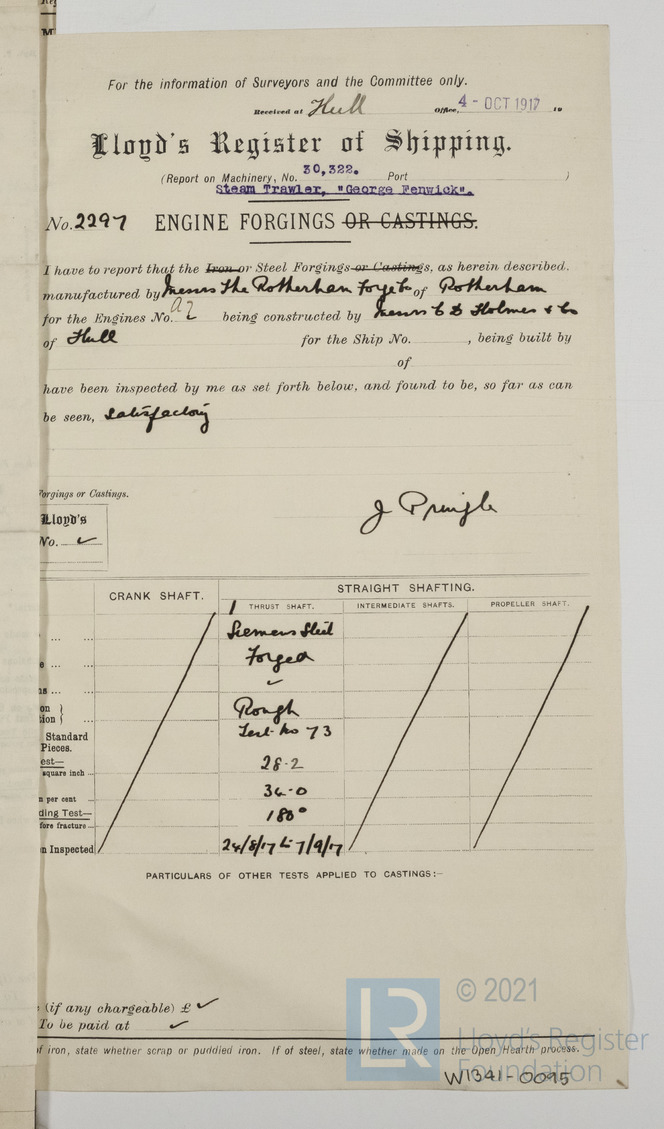 For the information of Surveyors and the Committee only.
Received at Hull Office, 4- OCT 1917 19
Lloyd's Register of Shipping.
(Report on Machinery, No. 30,322. Port )
Steam Trawler, "George Fenwick".
No. 2297 ENGINE FORGINGS OR CASTINGS.
I have to report that the Iron or Steel Forgings or Castings, as herein described.
manufactured by Messrs The Rotherham Forge Co of Rotherham
for the Engines No. being constructed by Messrs C D Holmes & Co
of Hull for the Ship No. , being built by
of
have been inspected by me as set forth below, and found to be, so far as can
be seen, satisfactory
Forgings or Castings.
J Pringle
Lloyd's
No. ✓
CRANK SHAFT. STRAIGHT SHAFTING.
1 THRUST SHAFT. INTERMEDIATE SHAFTS. PROPELLER SHAFT.
Siemens Steel
Forged
✓
Rough
Standard Test No 73
Pieces.
est— 28.2
square inch
per cent 34.0
ding Test— 180°
fore fracture
Inspected 24/8/17 to 7/9/17
PARTICULARS OF OTHER TESTS APPLIED TO CASTINGS:-
(if any chargeable) £ ✓
To be paid at ✓
of iron, state whether scrap or puddled iron. If of steel, state whether made on the Open Hearth process.
LR © 2021
Lloyd's Register
Foundation
W1341-0095